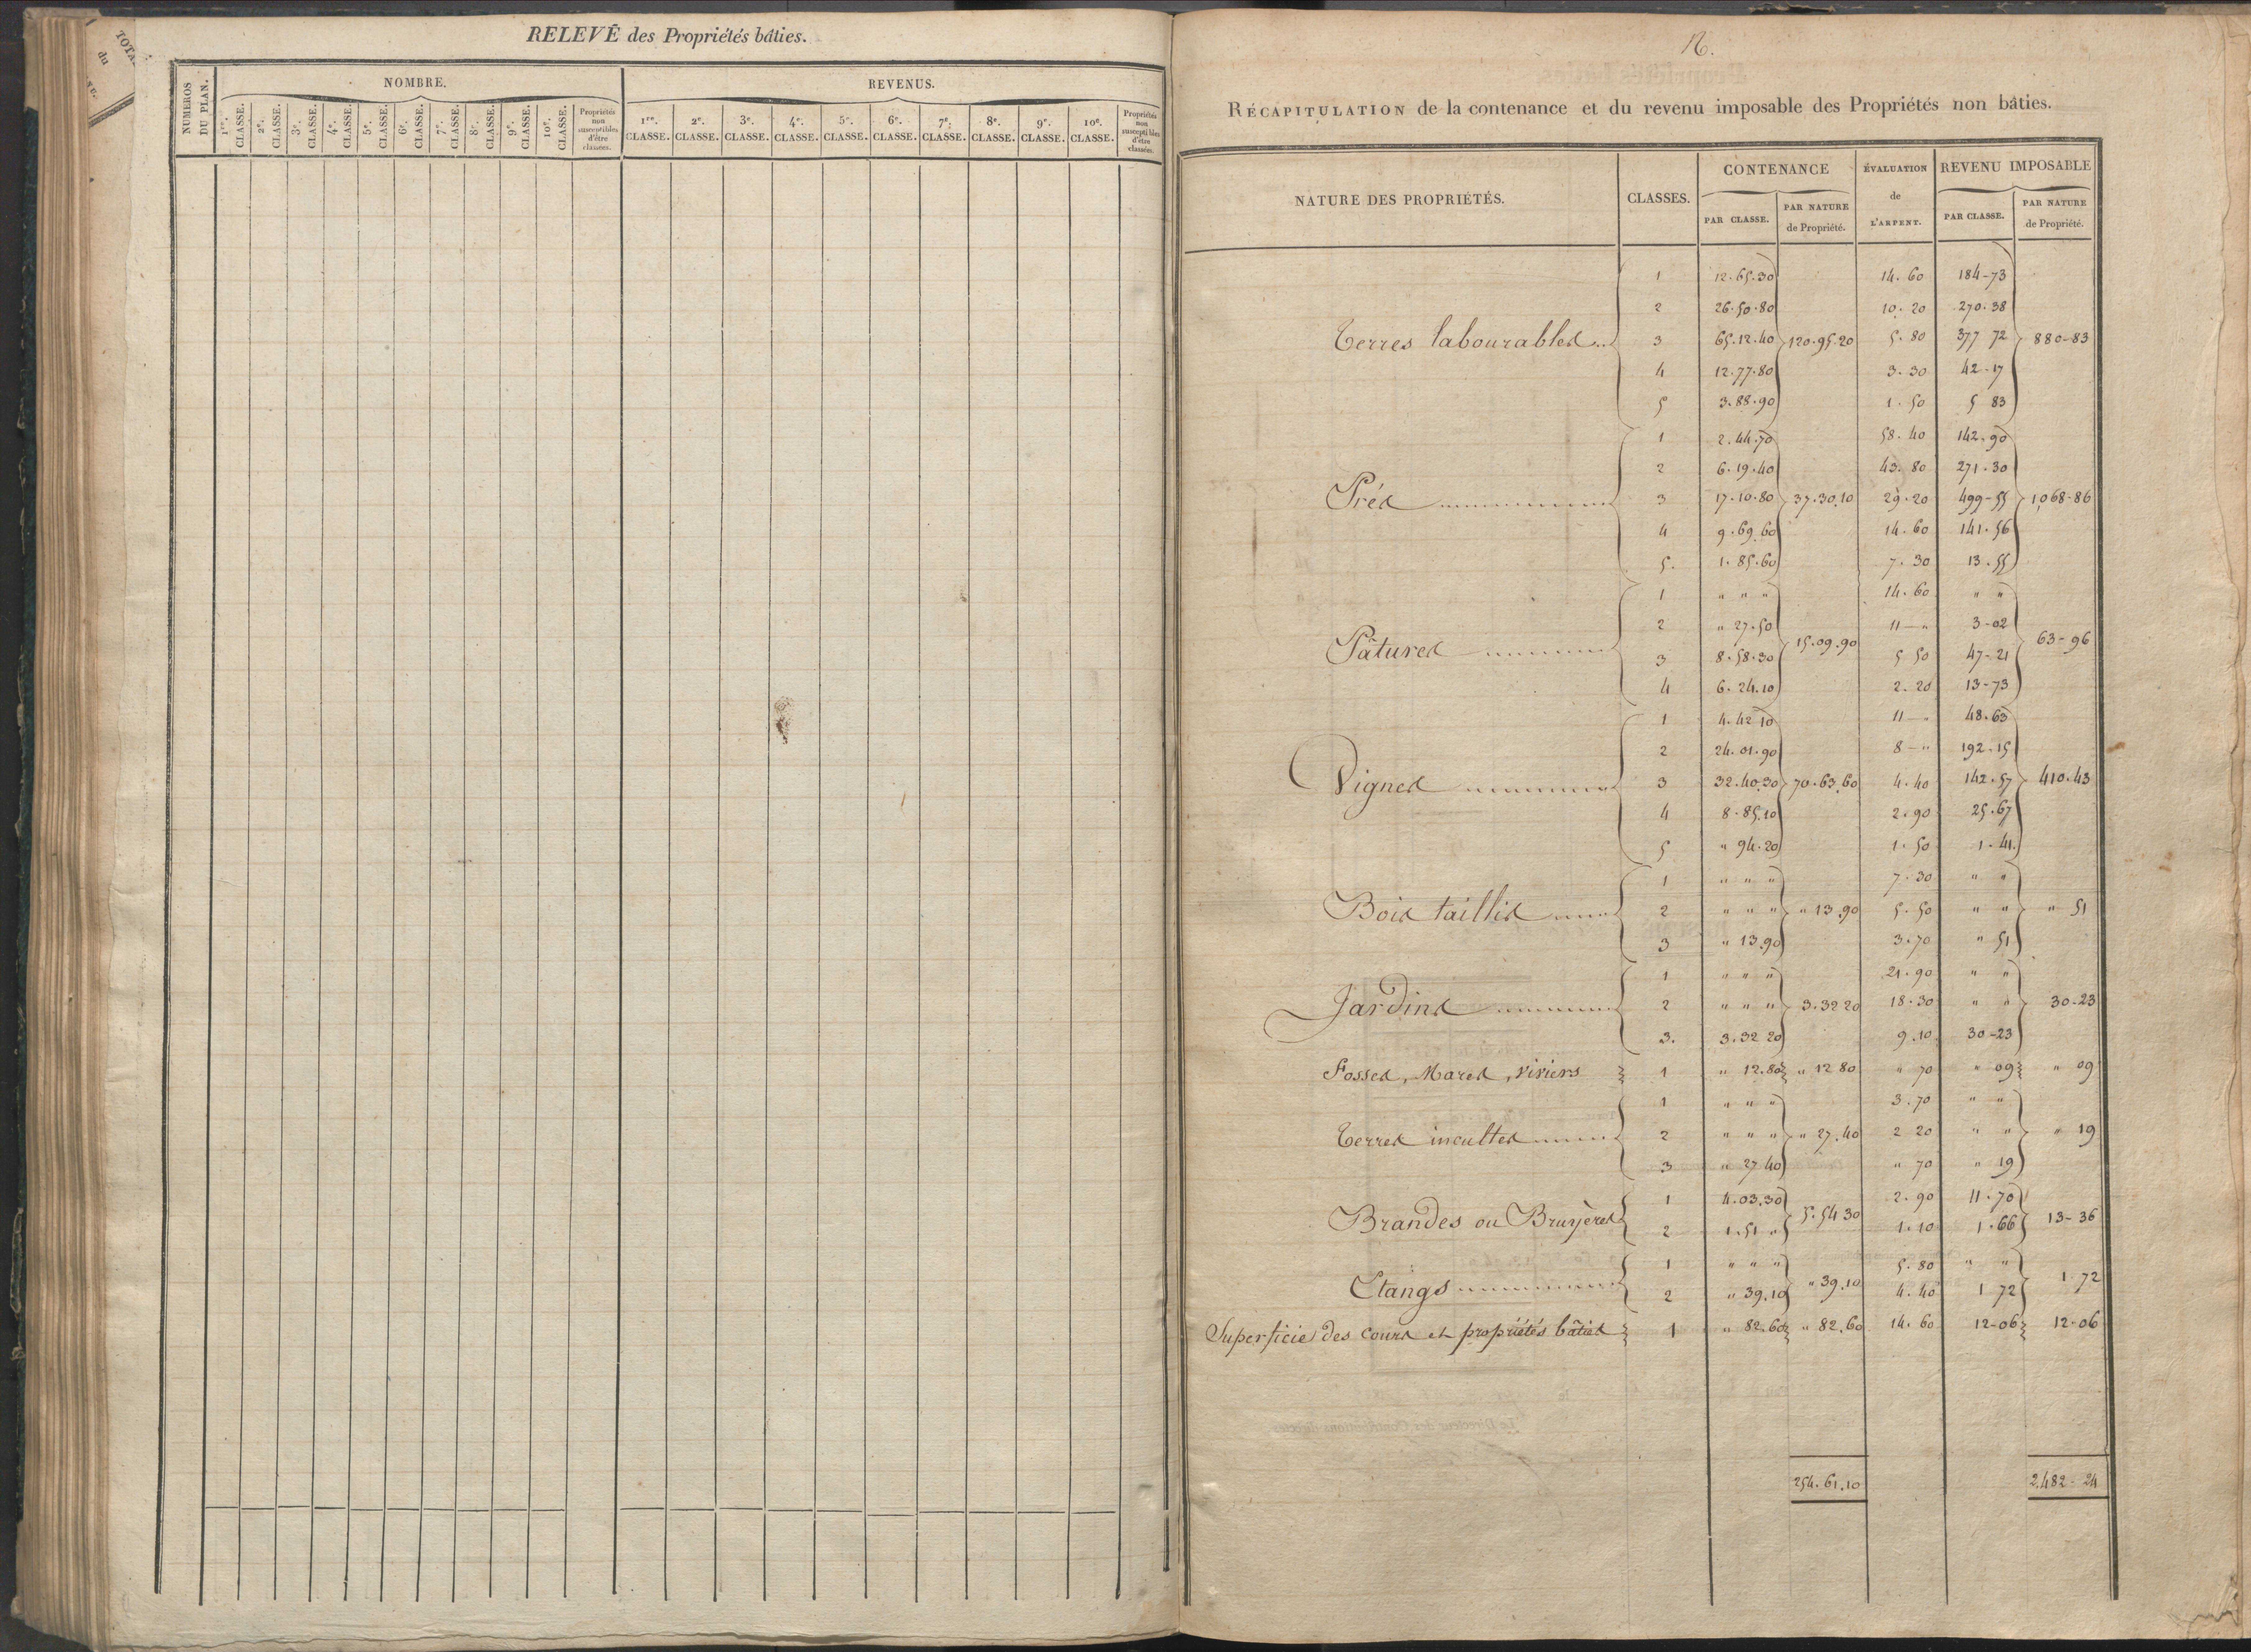 RELEVÉ des Propriétés bâties.
NUMEROS DU PLAN.
NOMBRE.
REVENUS.
1re. CLASSE. 2e. CLASSE. 3e. CLASSE. 4e. CLASSE. 5e. CLASSE. 6e. CLASSE. 7e. CLASSE. 8e. CLASSE. 9e. CLASSE. 10e. CLASSE. Propriétés non susceptibles d'être classées.
1re. CLASSE. 2e. CLASSE. 3e. CLASSE. 4e. CLASSE. 5e. CLASSE. 6e. CLASSE. 7e. CLASSE. 8e. CLASSE. 9e. CLASSE. 10e. CLASSE. Propriétés non susceptibles d'être classées.
RÉCAPITULATION de la contenance et du revenu imposable des Propriétés non bâties.
NATURE DES PROPRIÉTÉS. CLASSES. CONTENANCE ÉVALUATION de L'ARPENT. REVENU IMPOSABLE
PAR CLASSE. PAR NATURE de Propriété. PAR CLASSE. PAR NATURE de Propriété.
1 12.65.30 14.60 184-73
2 26.50.80 10.20 270.38
Terres labourables.. 3 65.12.40 120.95.20 5.80 377 72 880-83
4 12.77.80 3.30 42-17
5 3.88.90 1.50 5 83
1 2.44.70 58.40 142.90
2 6.19.40 43.80 271.30
Prés 3 17.10.80 37.30.10 29.20 499-55 1,068-86
4 9.69.60 14.60 141.56
5. 1.85.60 7.30 13.55
1 " " " 14.60 " "
2 " 27.50 11-" 3-02
Pâtures 15.09.90 63-96
3 8.58.30 5 50 47-21
4 6.24.10 2.20 13-73
1 4.42 10 11-" 48.63
2 24.01.90 8-" 192.15
Vignes 3 32.40.30 70.63.60 4.40 142.57 410.43
4 8.85.10 2.90 25.67
5 " 94.20 1.50 1-41.
1 " " " 7.30 " "
Bois taillis 2 " " " " 13.90 5.50 " " " 51
3 " 13.90 3.70 " 51
1 " " " 21.90 " "
Jardins 2 " " " 3.32 20 18.30 " " 30-23
3. 3.32 20 9.10 30-23
Fosses, Mares, viviers 1 " 12.80 " 12 80 " 70 " 09 " 09
1 " " " 3.70 " "
Terres incultes 2 " " " " 27.40 2 20 " " " 19
3 " 27 40 " 70 " 19
1 4.03.30 2.90 11.70
Brandes ou Bruyères 5.54 30 13-36
2 1.51 " 1.10 1.66
1 " " " 5.80 " "
Etangs " 39.10 1 72
2 " 39.10 4.40 1 72
Superficie des cours et propriétés bâties 1 " 82.60 " 82.60 14.60 12-06 12-06
254.61.10 2,482-24